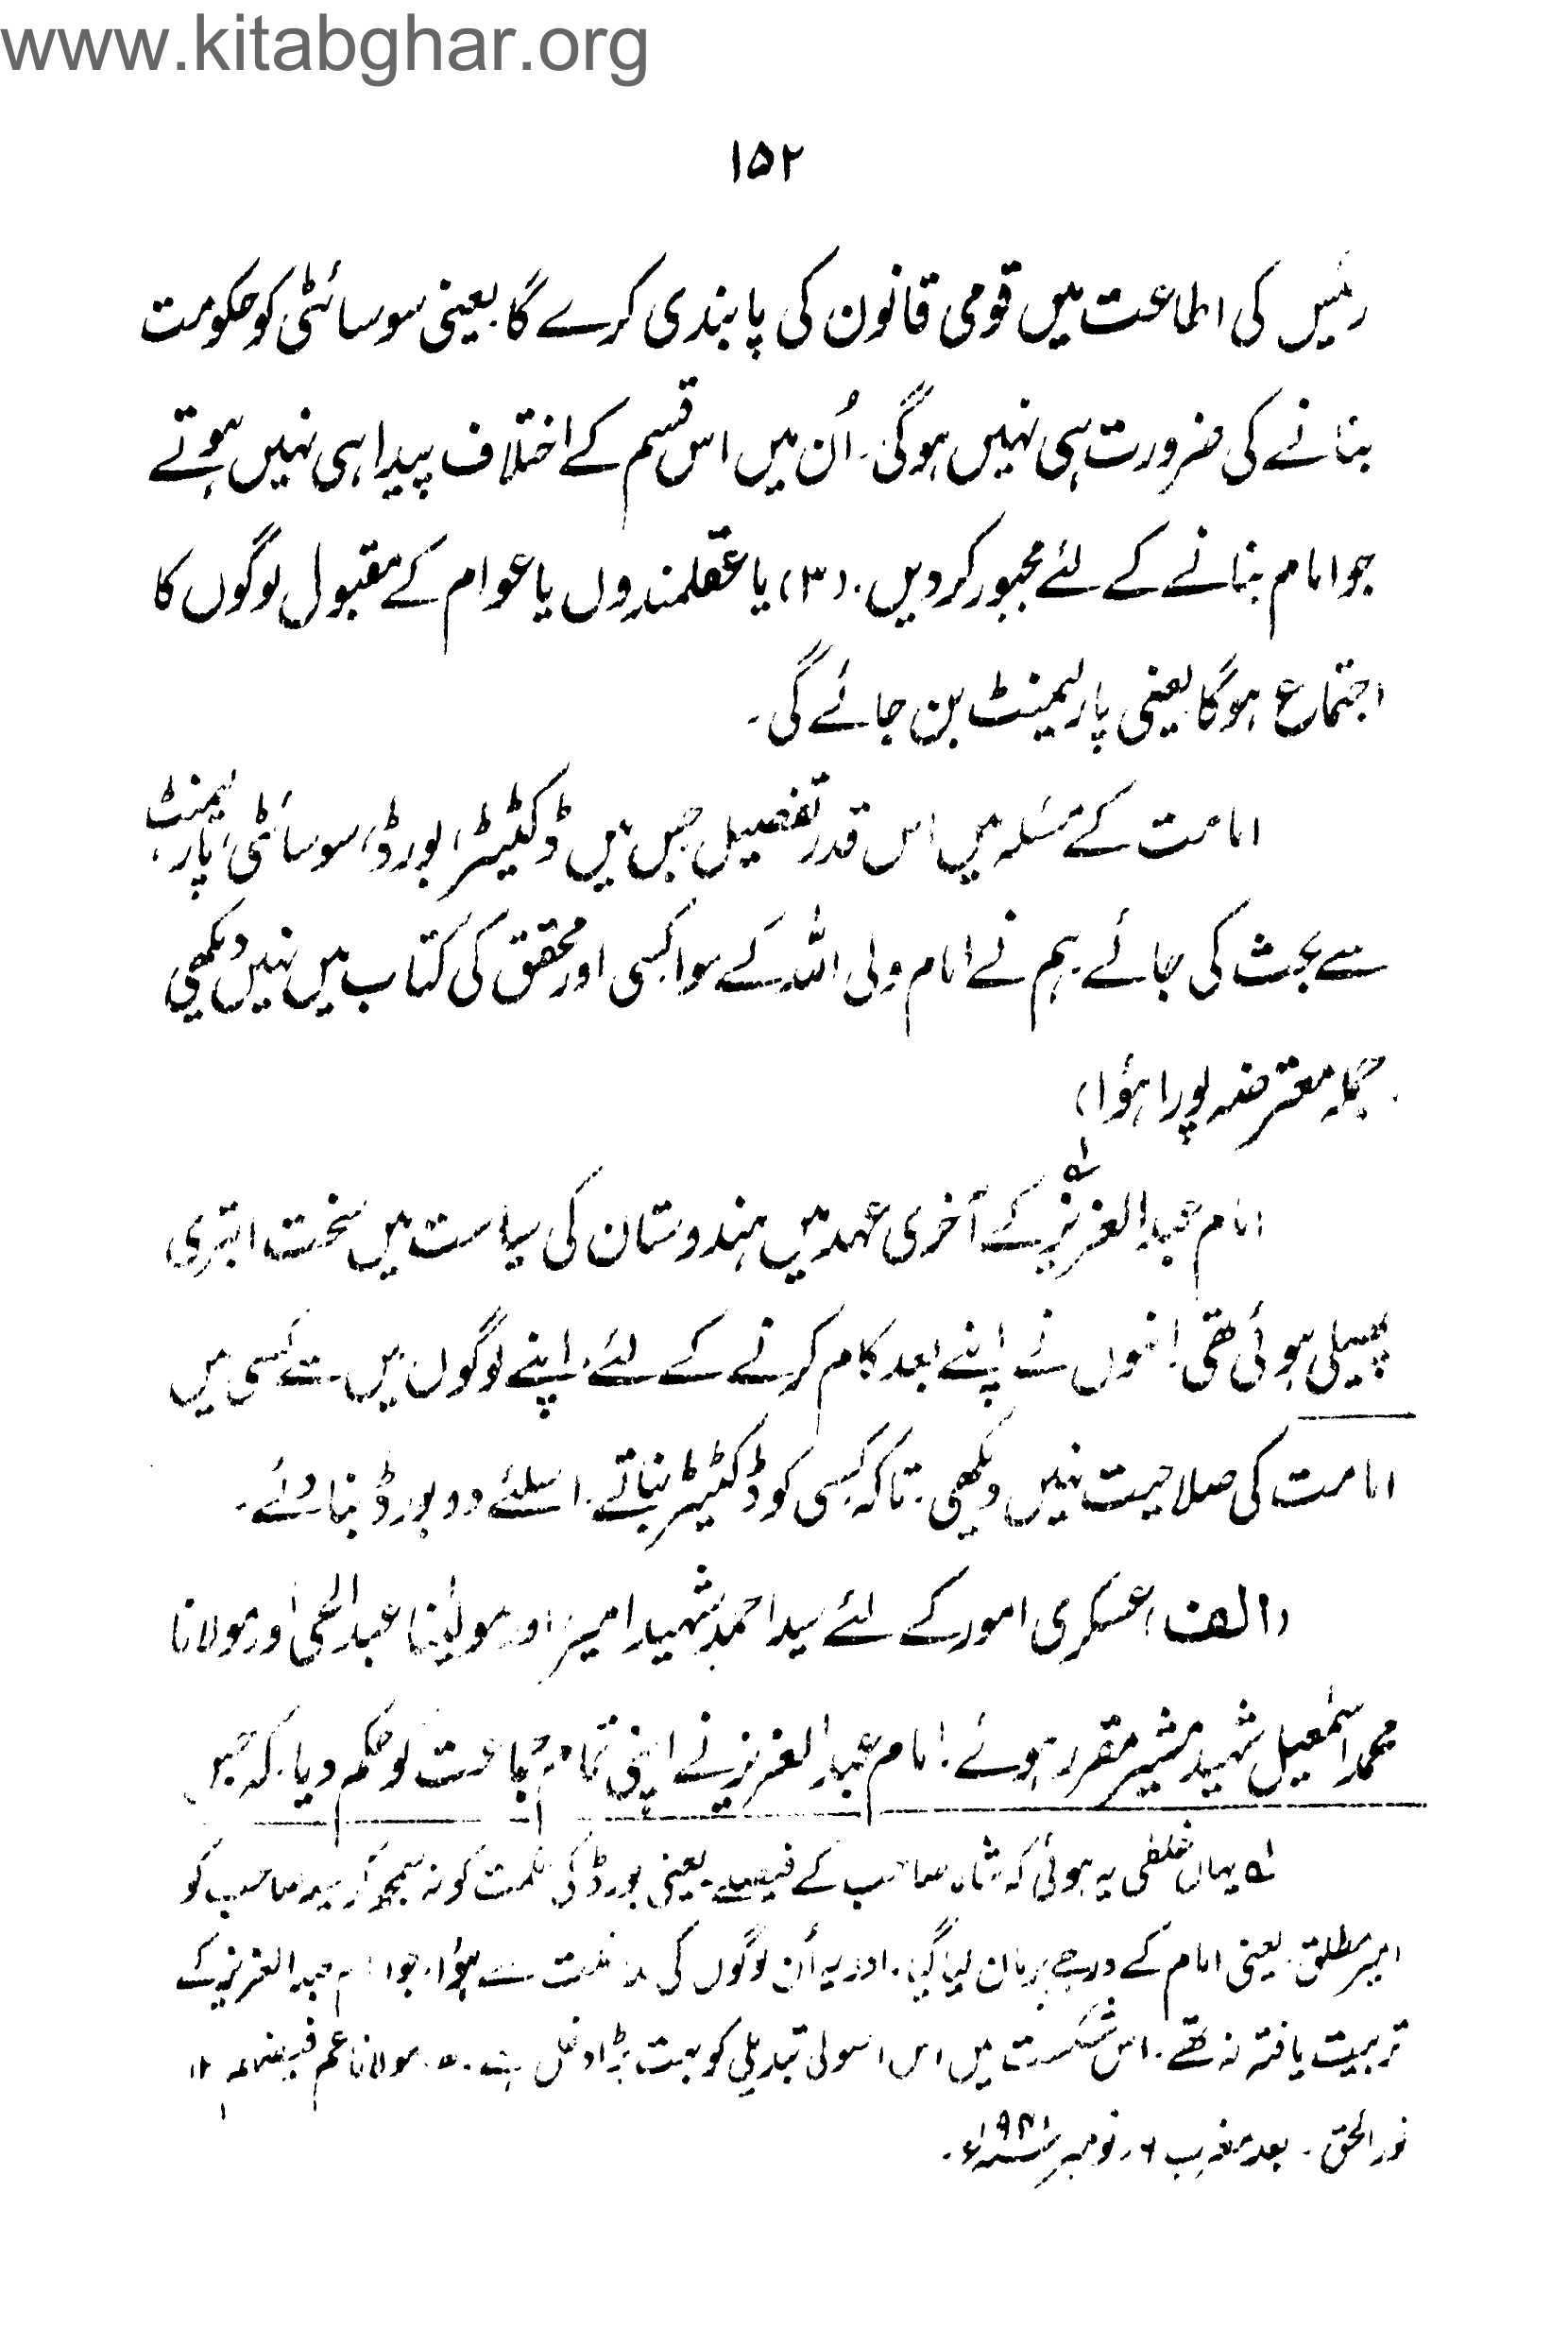 www.kitabghar.org
۱۵۲
رئیس کی اطاعت میں قومی قانون کی پابندی کرے گا۔ یعنی سوسائٹی کو حکومت
بنانے کی ضرورت ہی نہیں ہوگی۔ اُن میں اس قسم کے اختلاف پیدا ہی نہیں ہوتے
جو امام بنانے کے لئے مجبور کردیں۔ (۳) یا عقلمندوں یا عوام کے مقبول لوگوں کا
اجتماع ہوگا یعنی پارلیمنٹ بن جائے گی۔
امامت کے مسئلہ میں اس قدر تفصیل جس میں ڈکٹیٹر، بورڈ، سوسائٹی، پارلیمنٹ
سے بحث کی جائے۔ ہم نے امام ولی اللہ کے سوا کسی اور محقق کی کتاب میں نہیں دیکھی
۔ جملہ معترضہ پورا ہؤا)
امام عبدالعزیزؒ کے آخری عہد میں ہندوستان کی سیاست میں سخت ابتری
پھیلی ہوئی تھی۔ انہوں نے اپنے بعد کام کرنے کے لئے، اپنے لوگوں میں سے کسی میں
امامت کی صلاحیت نہیں دیکھی۔ تاکہ کسی کو ڈکٹیٹر بناتے۔ اسلئے دو بورڈ بنا دئے۔
(الف) عسکری امور کے لئے سید احمد شہید امیر اور مولیٰنا عبدالحی اور مولانا
محمد اسمٰعیل شہید مشیر مقرر ہوئے۔ امام عبدالعزیز نے اپنی تمام جماعت کو حکم دیا۔ کہ جس
لہ یہاں غلطی یہ ہوئی کہ شاہ صاحب کے فیصلے یعنی بورڈ کی حکمت کو نہ سمجھ کر سید صاحب کو
امیر مطلق۔ یعنی امام کے درجے پر مان لیا گیا۔ اور یہ اُن لوگوں کی سے ہؤا۔ جو امام عبدالعزیز کے
تربیت یافتہ نہ تھے۔ اس شکست میں اس اصولی تبدیلی کو بہت بڑا دخل ہے۔ مولانا عم فیضہم ۱۲
نورالحق۔ بعد مغرب ۶۔ نومبر ۱۹۴۱ء۔